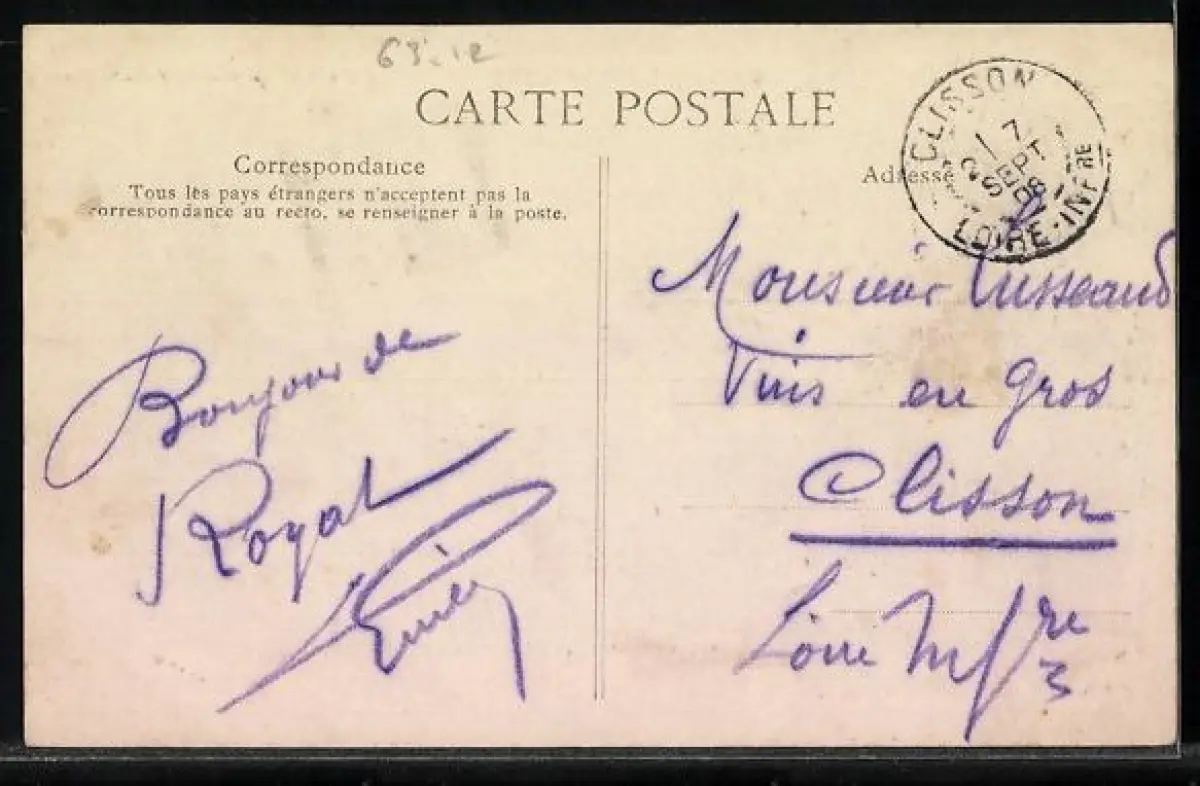 CARTE POSTALE
Correspondance
Tous lès pays étrangers n'acceptent pas la
correspondance au recto, se renseigner à la poste.
Adresse
CLISSON
7
2 SEPT
08
LOIRE-INFRE
Bonjour de
Royat
Monsieur Lusseaud
Vins en gros
Clisson
Loire Infre